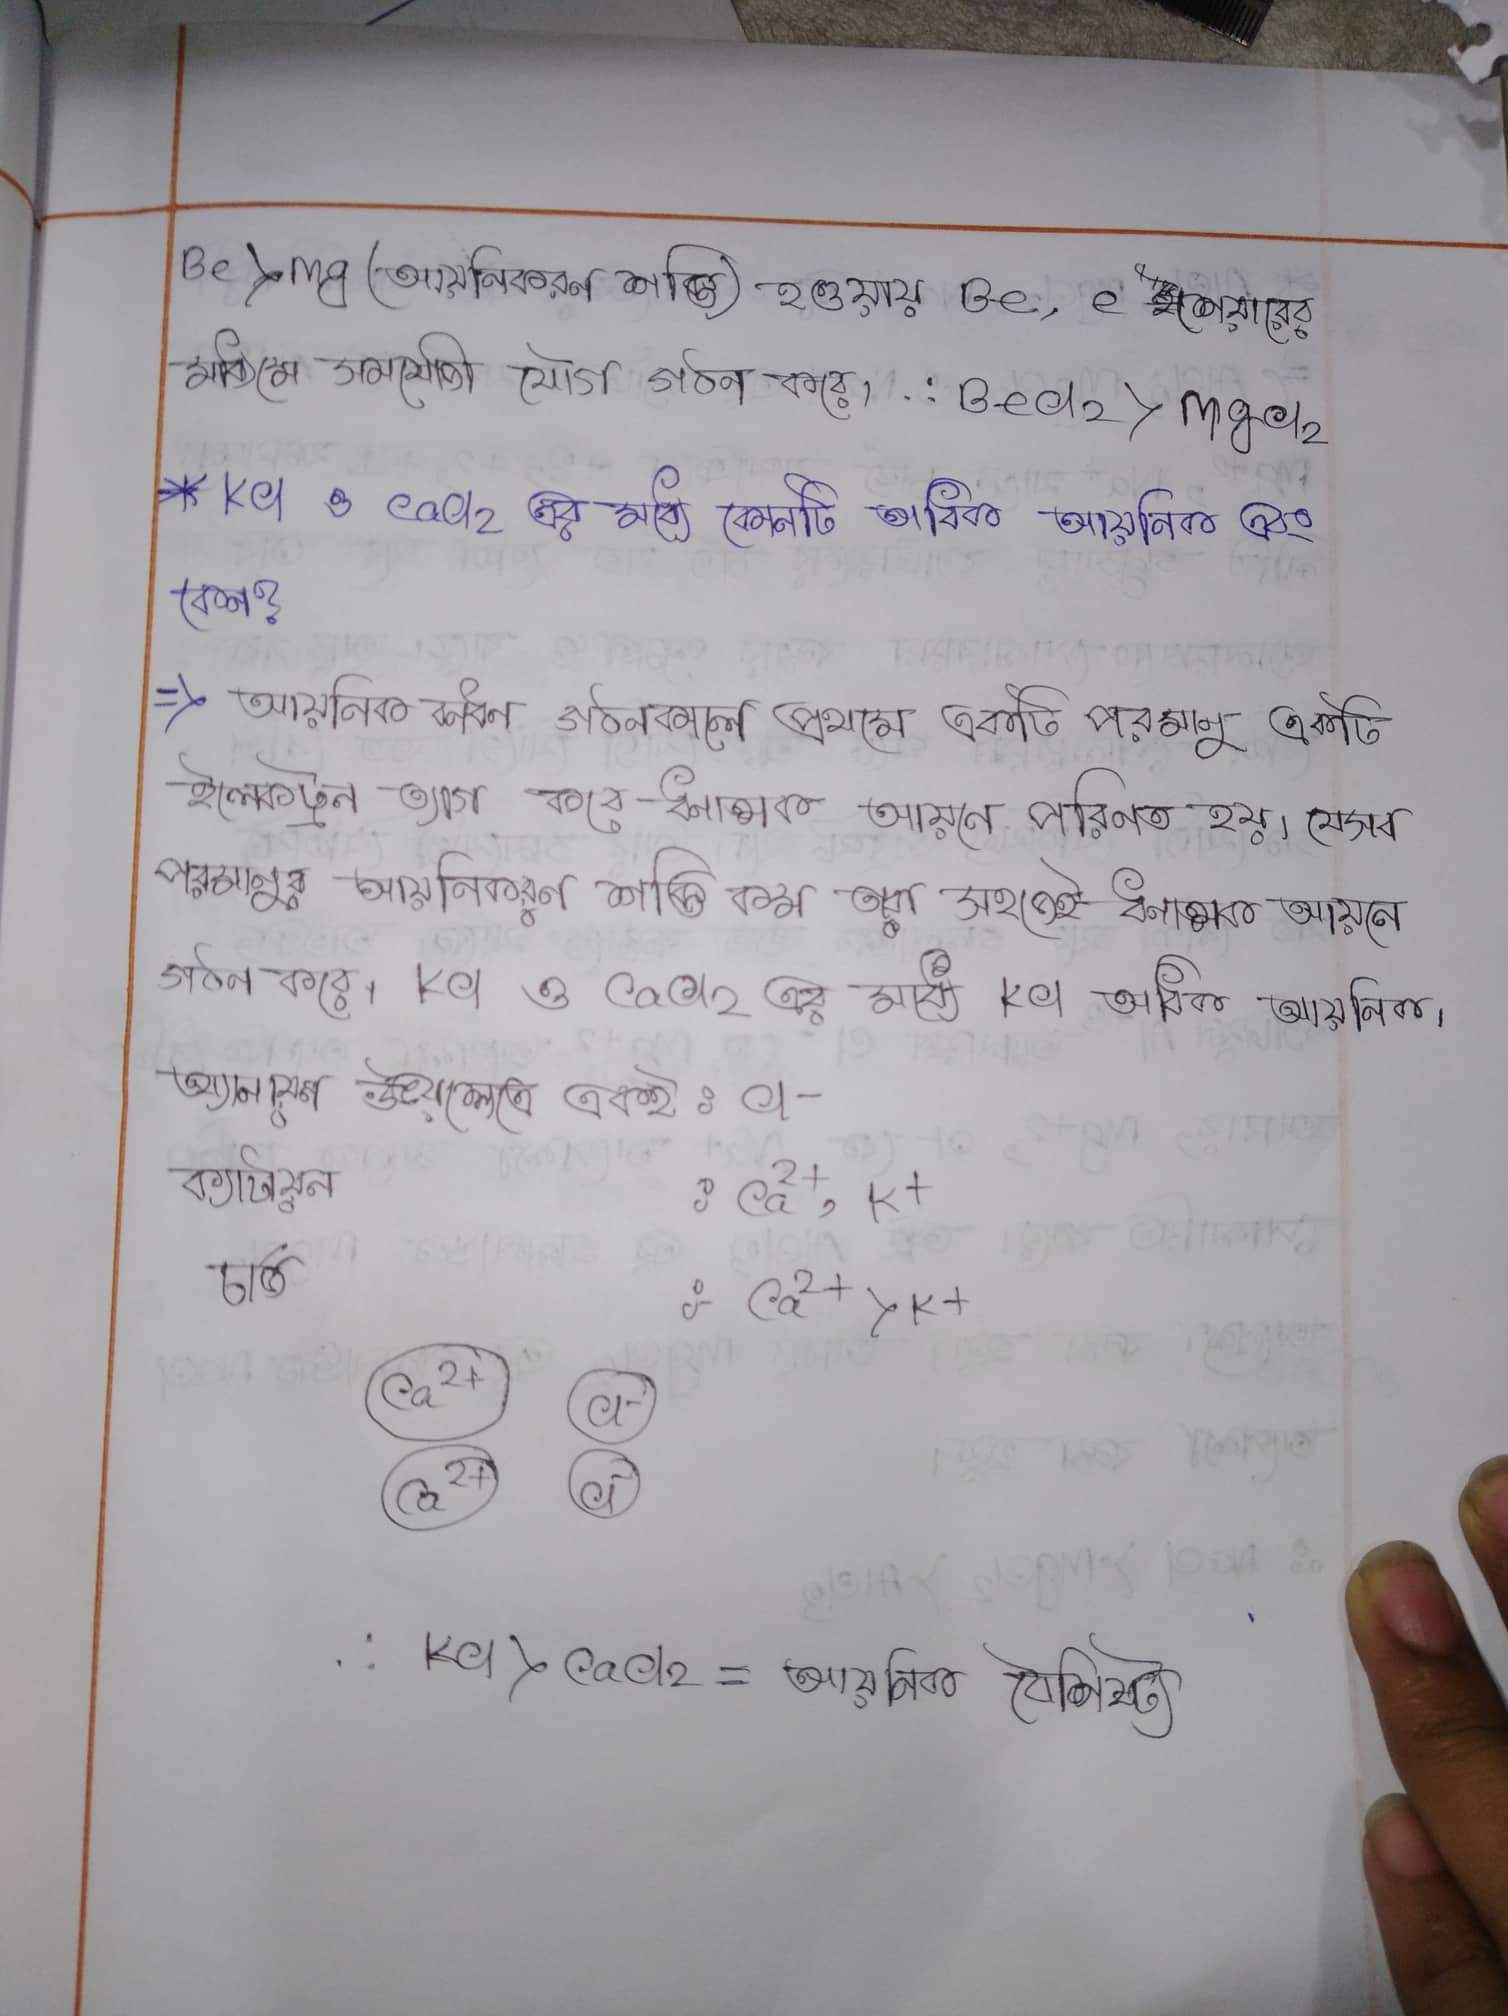 Be > Mg (আয়নিকরন শক্তি) হওয়ায় Be, e⁻ শেয়ারের
মাধ্যমে সমযোজী যৌগ গঠন করে। ∴ BeCl2 > MgCl2
* KCl ও CaCl2 এর মধ্যে কোনটি অধিক আয়নিক এবং
কেন?
=> আয়নিক বন্ধন গঠনকালে প্রথমে একটি পরমানু একটি
ইলেকট্রন ত্যাগ করে ধনাত্মক আয়নে পরিনত হয়। যেসব
পরমানুর আয়নিকরন শক্তি কম তারা সহজেই ধনাত্মক আয়নে
গঠন করে। KCl ও CaCl2 এর মধ্যে KCl অধিক আয়নিক।
অ্যানায়ন উভয়ক্ষেত্রে একই : Cl-
ক্যাটায়ন : Ca2+, K+
চার্জ : Ca2+ > K+
Ca2+ Cl-
Ca2+ Cl-
∴ KCl > CaCl2 = আয়নিক বৈশিষ্ট্য